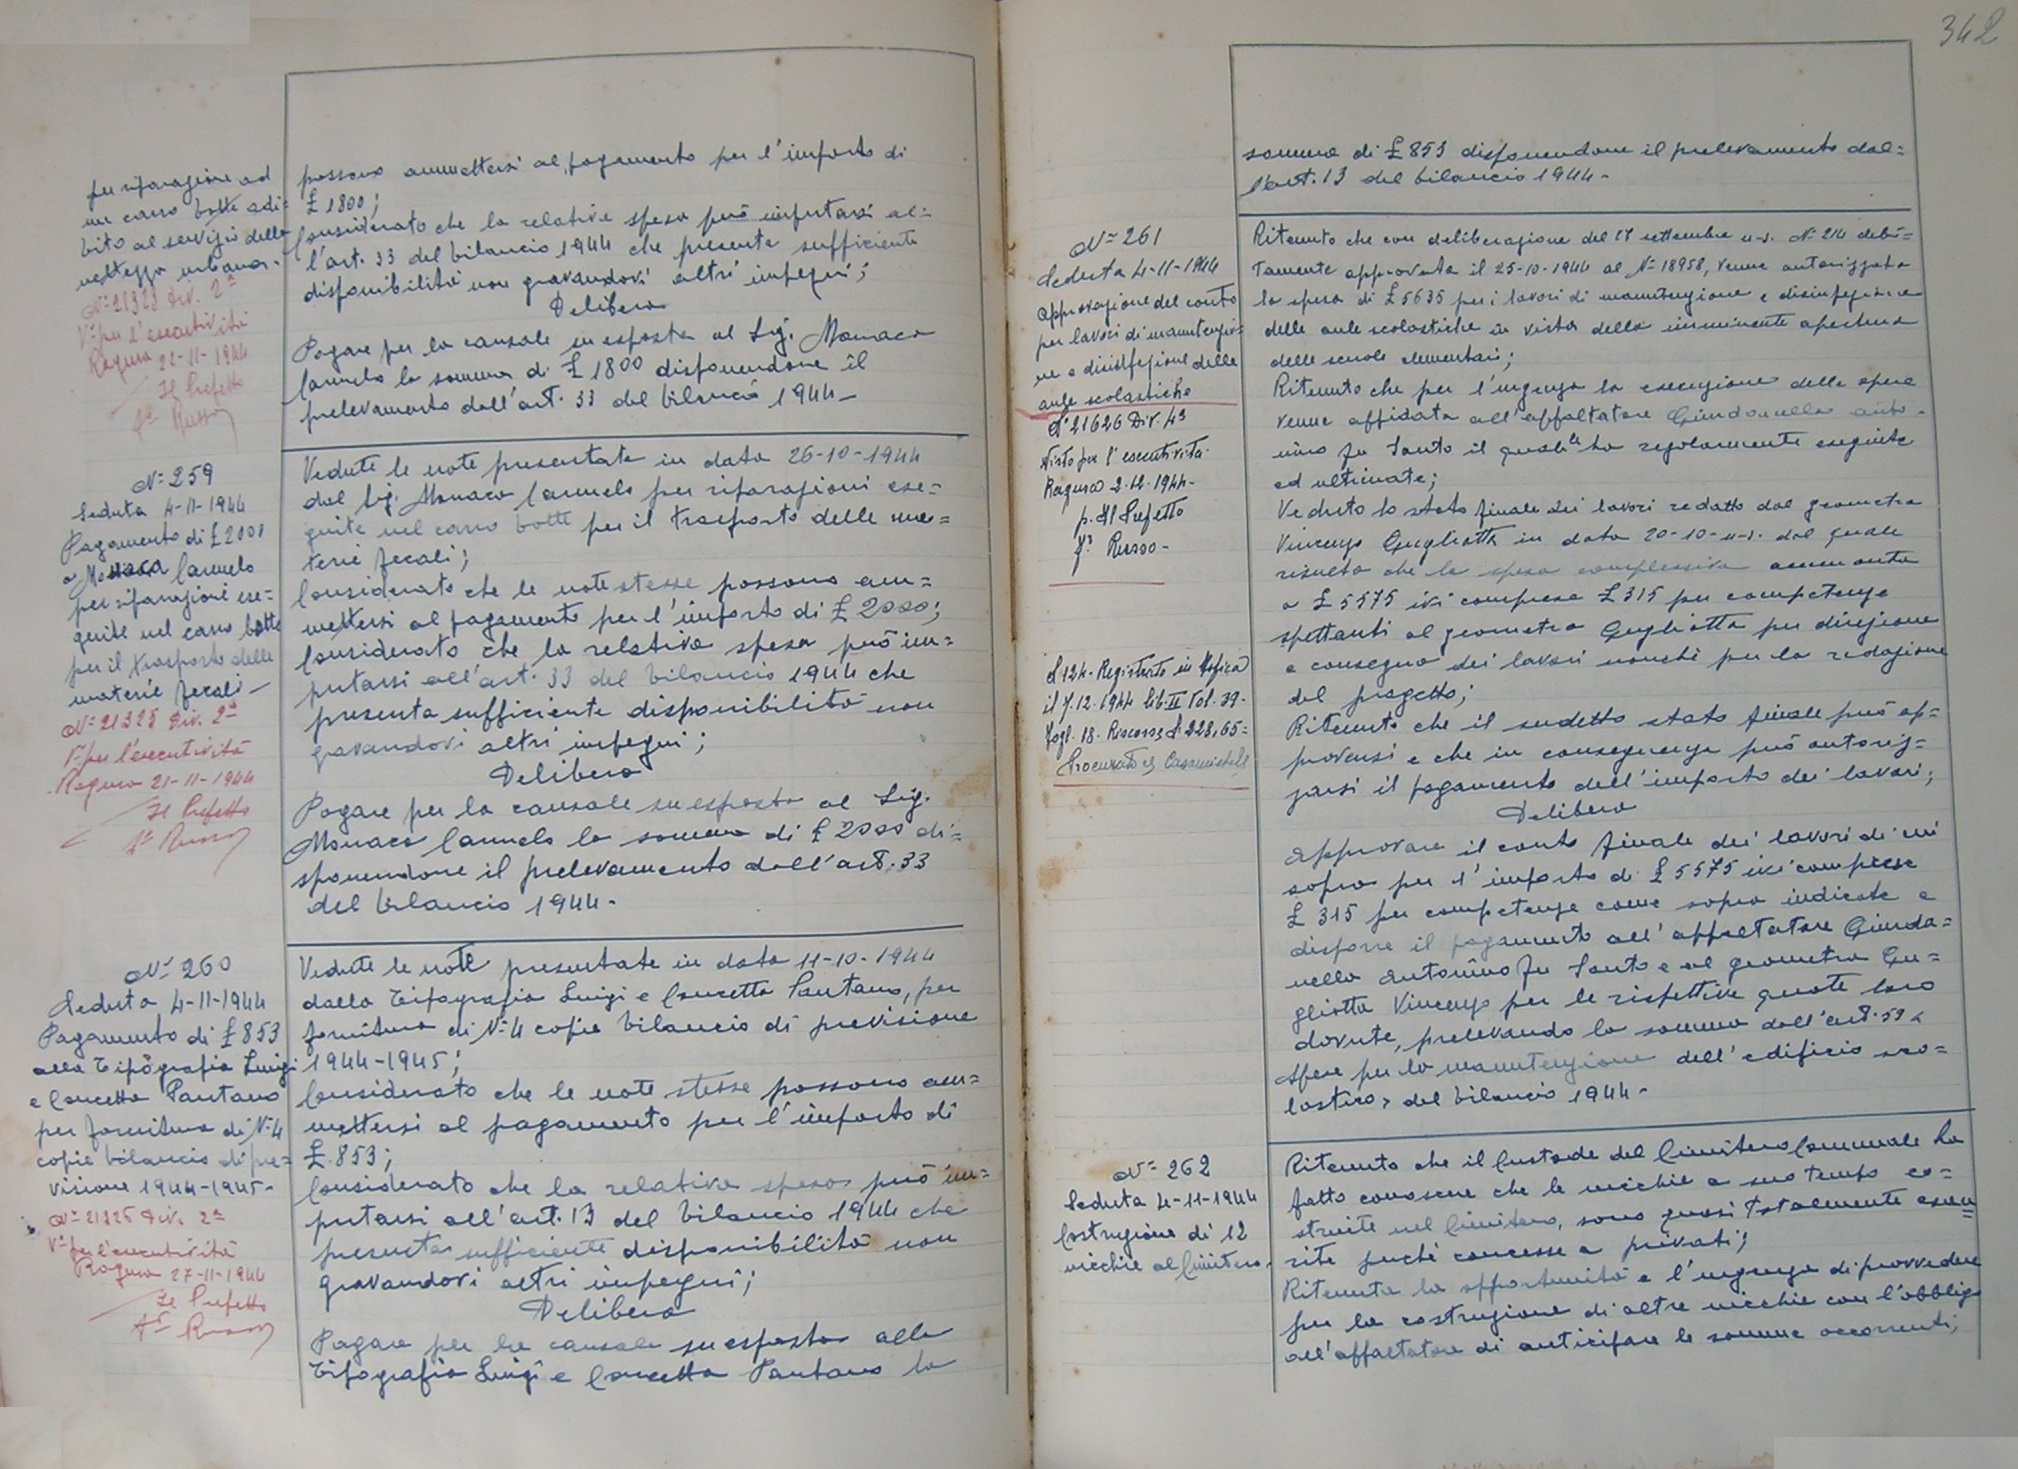 per riparazione ad
un carro botte adi=
bito al servizio della
nettezza urbana.
N= 21323 Div. 2ª
Vº per l'esecutività
Ragusa 22-11-1944
Il Prefetto
Fº Russo
possono ammettersi al pagamento per l'importo di
£ 1800;
Considerato che la relativa spesa può imputarsi al=
l'art. 33 del bilancio 1944 che presenta sufficiente
disponibilità non gravandovi altri impegni;
Delibera
Pagare per la causale su esposta al Sig. Monaca
Carmelo la somma di £ 1800 disponendone il
prelevamento dall'art. 33 del bilancio 1944-
N= 259
Seduta 4-11-1944
Pagamento di £ 2000
a Monaca Carmelo
per riparazioni ese=
guite nel carro botte
per il trasporto delle
materie fecali-
N= 21325 Div. 2ª
Vº per l'esecutività
Ragusa 21-11-1944
Il Prefetto
Fº Russo
Vedute le note presentate in data 26-10-1944
dal Sig. Monaco Carmelo per riparazioni ese=
guite nel carro botte per il trasporto delle ma=
terie fecali;
Considerato che le note stesse possono am=
mettersi al pagamento per l'importo di £ 2000;
Considerato che la relativa spesa può im=
putarsi all'art. 33 del bilancio 1944 che
presenta sufficiente disponibilità non
gravandovi altri impegni;
Delibera
Pagare per la causale su esposta al Sig.
Monaco Carmelo la somma di £ 2000 di=
sponendone il prelevamento dall'art. 33
del bilancio 1944-
N= 260
Seduta 4-11-1944
Pagamento di £ 853
alla Tipografia Luigi
e Concetta Pantano
per fornitura di N= 4
copie bilancio di pre=
visione 1944-1945-
N= 21326 Div. 2ª
Vº per l'esecutività
Ragusa 27-11-1944
Il Prefetto
Fº Russo
Vedute le note presentate in data 11-10-1944
dalla Tipografia Luigi e Concetta Pantano, per
fornitura di N= 4 copie bilancio di previsione
1944-1945;
Considerato che le note stesse possono am=
mettersi al pagamento per l'importo di
£. 853;
Considerato che la relativa spesa può im=
putarsi all'art. 13 del bilancio 1944 che
presenta sufficiente disponibilità non
gravandovi altri impegni;
Delibera
Pagare per la causale su esposta alla
Tipografia Luigi e Concetta Pantano la
342
somma di £ 853 disponendone il prelevamento dal=
l'art. 13 del bilancio 1944-
N= 261
Seduta 4-11-1944
Approvazione del conto
per lavori di manutenzio=
ne e disinfezione delle
aule scolastiche
N= 21626 Div. 4ª
Visto per l'esecutività
Ragusa 2-12-1944-
p. Il Prefetto
Fº Russo-
N 124- Registrato in Modica
il 7.12.1944 Lib. II Vol. 39-
Fogl. 18- Riscosse £ 228,65=
Ritenuto che con deliberazione del 17 settembre u.s. N= 214 debi=
tamente approvata il 25-10-1944 al N= 18958, venne autorizzata
la spesa di £ 5635 per i lavori di manutenzione e disinfezione
delle aule scolastiche in vista della imminente apertura
delle scuole elementari;
Ritenuto che per l'urgenza la esecuzione delle opere
venne affidata all'appaltatore Giundanella Anto-
nino fu Santo il quale le ha regolarmente eseguite
ed ultimate;
Veduto lo stato finale dei lavori redatto dal geometra
Vincenzo Gugliotta in data 20-10-u.s. dal quale
risulta che la spesa complessiva ammonta
a £ 5575 ivi comprese £ 315 per competenze
spettanti al geometra Gugliotta per direzione
e consegna dei lavori nonchè per la redazione
del progetto;
Ritenuto che il sudetto stato finale può ap=
provarsi e che in conseguenza può autoriz=
zarsi il pagamento dell'importo dei lavori;
Delibera
Approvare il conto finale dei lavori di cui
sopra per l'importo di £ 5575 ivi comprese
£ 315 per competenze come sopra indicate e
disporre il pagamento all'appaltatore Giunda=
nella Antonino fu Santo e al geometra Gu=
gliotta Vincenzo per le rispettive quote loro
dovute, prelevando la somma dall'art. 59 <
Spese per la manutenzione dell'edificio sco=
lastico > del bilancio 1944-
N= 262
Seduta 4-11-1944
Costruzione di 12
nicchie al Cimitero.
Ritenuto che il Custode del Cimitero Comunale ha
fatto conoscere che le nicchie a suo tempo co=
struite nel Cimitero, sono quasi totalmente esau=
rite perchè concesse a privati;
Ritenuta la opportunità e l'urgenza di provvedere
per la costruzione di altre nicchie con l'obbligo
all'appaltatore di anticipare le somme occorrenti;